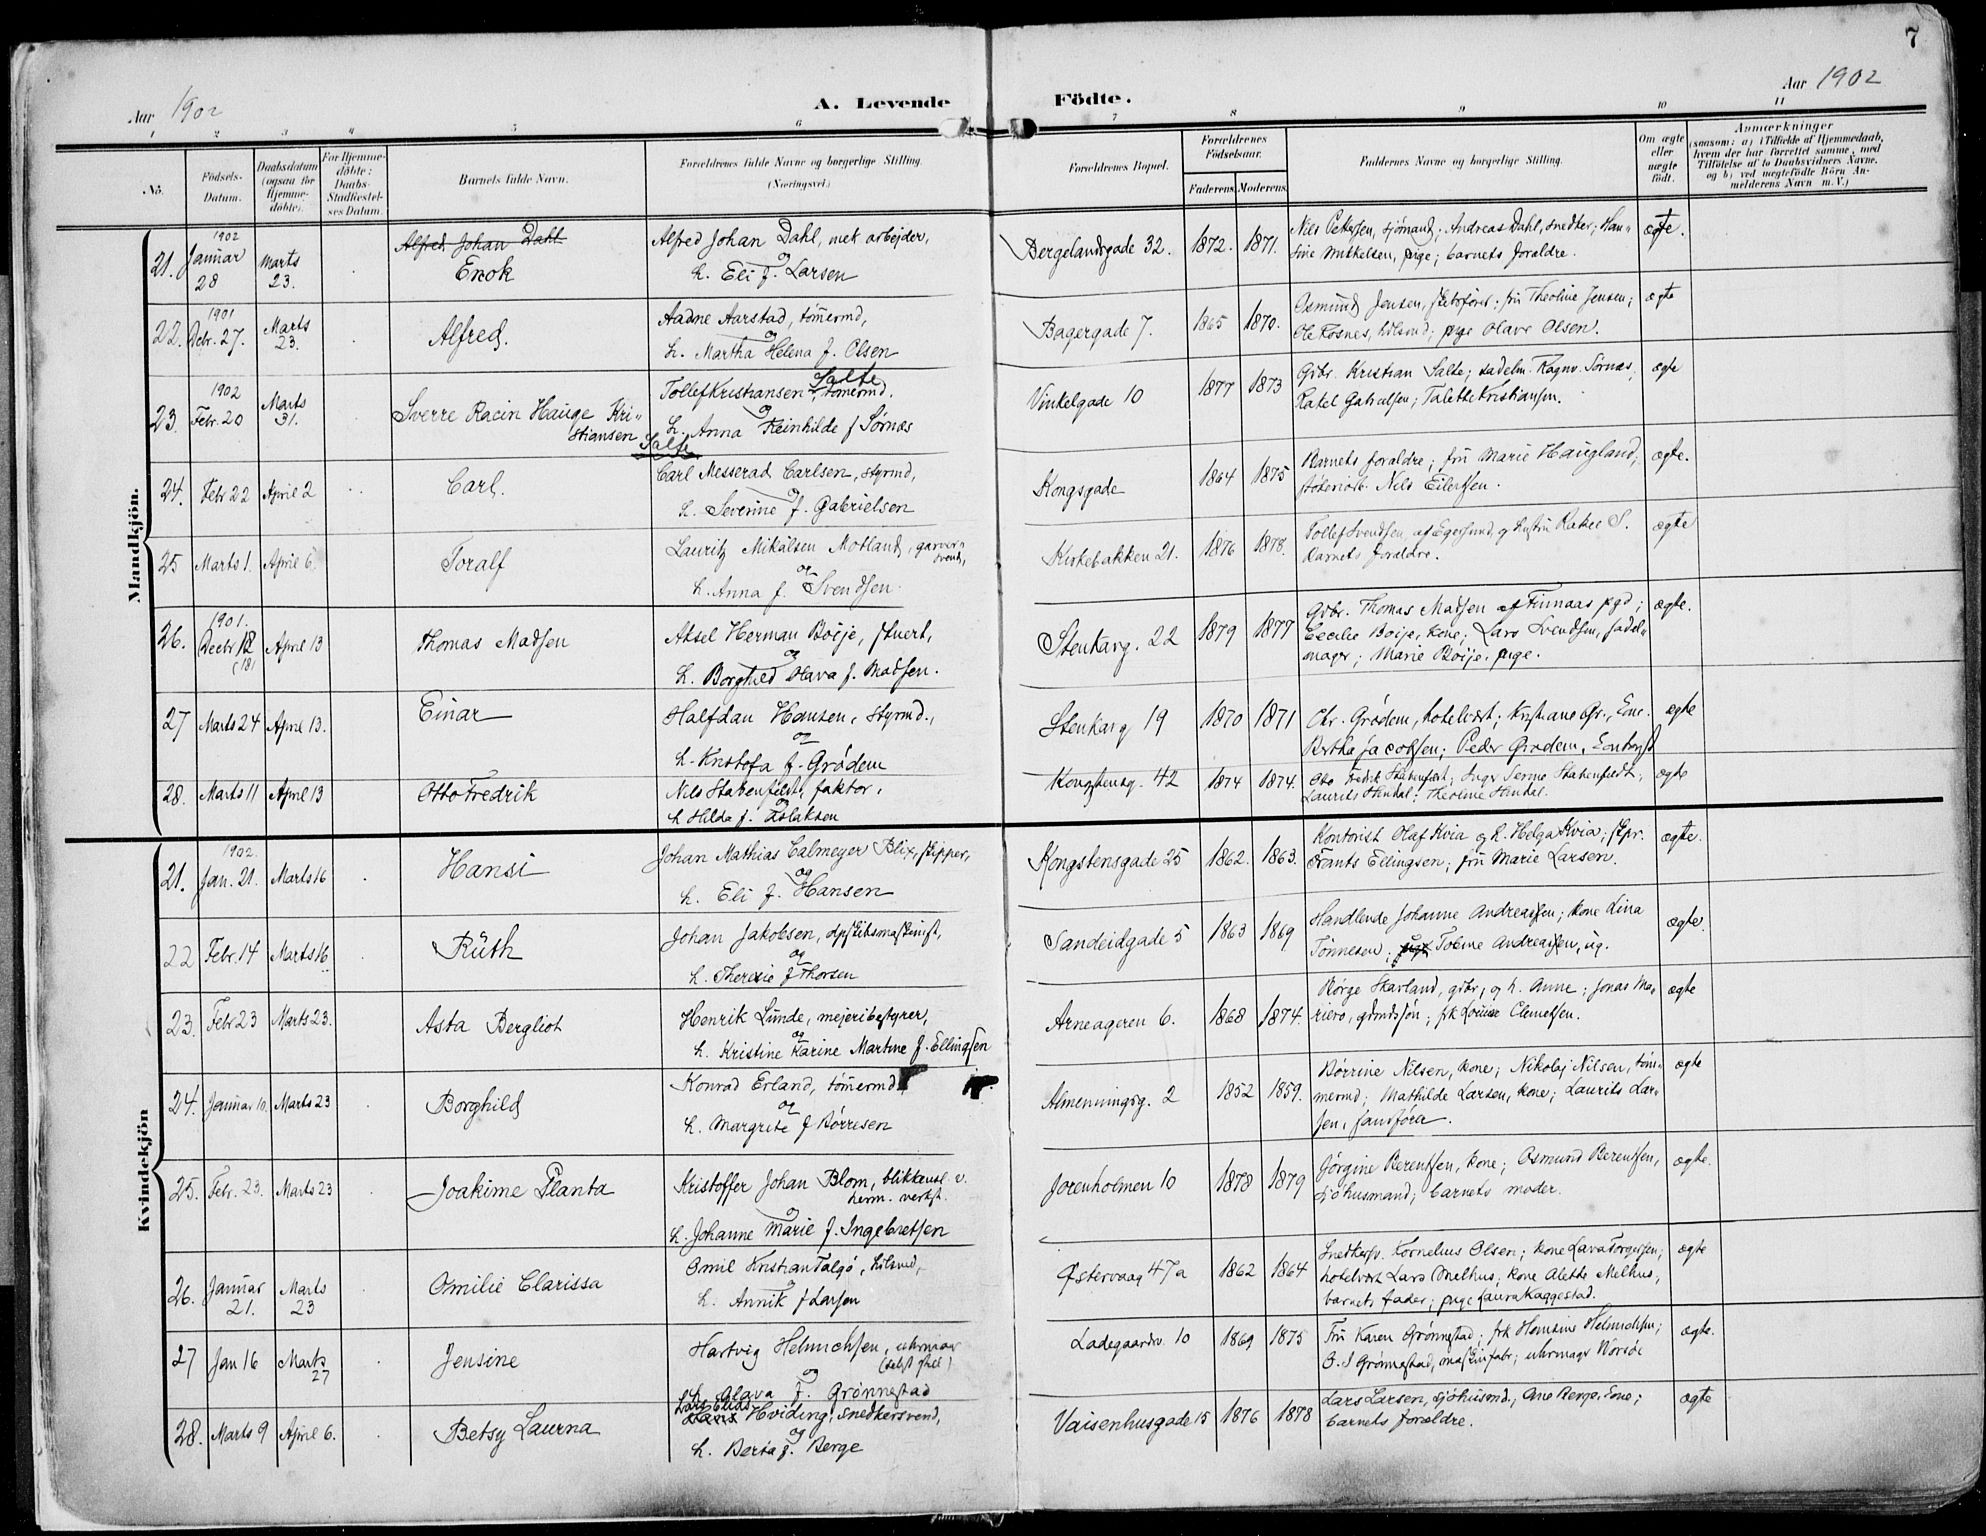 7
Aar 1902
A. Levende
Födte.
Aar 1902
1 2 3 4 5 6 7 8 9 10 11
No.
Födsels-Datum.
Daabsdatum (ogsaa for Hjemmedöbte).
For Hjemmedöbte: Daabs-Stadfestelses Datum.
Barnets fulde Navn.
Forældrenes fulde Navne og borgerlige Stilling.
(Næringsvei.)
Forældrenes Bopæl.
Forældrenes Födselsaar.
Faderens. Moderens.
Faddernes Navne og borgerlige Stilling.
Om ægte eller uægte födt.
Anmærkninger
(saasom: a) i Tilfælde af Hjemmedaab, hvem der har forrettet samme, med Tilföielse af to Daabsvidners Navne, og b) ved uægtefödte Börn Anmelderens Navn m. V.)
Mandkjön.
21. 1902 Januar 28 Marts 23. Alfred Johan Dahl Enok
Alfred Johan Dahl, mek arbejder,
og
h. Eli f. Larsen
Bergelandsgade 32. 1872. 1871.
Nils Pettersen, sjømand; Andreas Dahl, snedker; Han-
sine Mikkelsen, pige; barnets forældre.
ægte.
22. 1901 Decbr. 27. Marts 23. Alfred.
Aadne Aarstad, tømermd,
og
h. Martha Helena f. Olsen
Bagergade 7. 1865 1870.
Osmund Jensen, skibsfører; fru Theoline Jensen;
Ole Rosnes, ; pige Olave Olsen.
ægte
23. 1902 Febr. 20 Marts 31. Sverre Racin Hauge Kri-
stiansen Salte
Tollef Kristiansen Salte, tømermd.
og
h. Anna Reinhilde f Sørnæs
Vinkelgade 10 1877 1873
Gdbr. Kristian Salte; sadelm. Ragnv. Sørnæs,
Rakel Gabrielsen; Talette Kristiansen.
ægte
24. Febr 22 April 2 Carl.
Carl Messerad Carlsen, styrmd,
og
h. Severine f. Gabrielsen
Kongsgade 1864 1875
Barnets forældre; fru Marie Haugland,
Nils Eilertsen.
ægte.
25 Marts 1. April 6. Toralf
Lauritz Mikalsen Motland, garver-
svend,
og
h. Anna f. Svendsen.
Kirkebakken 21. 1876 1878.
Tollef Svendsen, af Egersund, og hustru Rakel S.
Barnets forældre.
ægte
26. 1901. Decbr 12 (18) April 13 Thomas Madsen
Aksel Herman Boije, stuert,
og
h. Borghild Olava f. Madsen.
Stenkarg. 22 1879 1877
Gdbr. Thomas Madsen af Finnaas pgd;
Cecilie Boije, kone; Lars Svendsen, sadel-
mager; Marie Boije, pige.
ægte.
27 Marts 24 April 13. Einar
Halfdan Hansen, styrmd.,
og
h. Kristofa f. Grødem
Stenkarg 19 1870 1871
Chr. Grødem, hotelvært; Kristiane Gr., kone.
Bertha Jacobsen; Peder Grødem,
ægte
28. Marts 11 April 13 Otto Fredrik
Nils Stabenfeldt, faktor,
og
h Hilda f. Aslaksen
Kongstensg. 42 1874 1874.
Otto Fredrik Stabenfeldt; Inger Serine Stabenfeldt;
Laurits Hindal; Theoline Hindal.
ægte
Kvindekjön
21. 1902. Jan. 21. Marts 16 Hansi
Johan Mathias Calmeyer Blix, skipper,
og
h. Eli f. Hansen
Kongstensgade 25 1862. 1863.
Kontorist Olaf Kvia og h. Helga Kvia; skpr.
Frants Ellingsen; fru Marie Larsen.
ægte.
22 Febr. 14 Marts 16 Ruth
Johan Jakobsen, dpskibsmaskinist,
og
h. Theresie f Thorsen
Sandeidgade 5 1863 1869
Handlende Johanne Andreassen; kone Lina
Tønnesen; pige Tobine Andreassen, ug.
ægte.
23. Febr 23 Marts 23. Asta Bergliot
Henrik Lunde, mejeribestyrer,
og
h. Kristine Karine Martine f. Ellingsen
Arneageren 6. 1868 1874.
Børge Skavland, gbr, og h. Anne; Jonas Ma-
riero, gdmdssøn; frk Lovise Clemetsen.
ægte
24. Januar 10. Marts 23 Borghild
Konrad Erland, tømermd
og
h. Margrete f Børresen
Almenningsg. 2 1852 1859.
Børrine Nilsen, kone; Nikolaj Nilsen, tøm-
mermd; Mathilde Larsen, kone; Laurits Lar-
sen,
ægte
25. Febr. 23. Marts 23 Joakime Planta
Kristoffer Johan Blom, blikkensl. v.
herm. verkst.
og
h. Johanne Marie f. Ingebretsen
Jorenholmen 10 1878 1879
Jørgine Berentsen, kone; Osmund Berentsen,
sjøhusmand; barnets moder.
ægte.
26. Januar 21. Marts 23 Omilie Clarissa
Omil Kristian Talgø,
og
h. Annik f Larsen
Østervaag 47a 1862 1864
Snedkersv. Kornelius Olsen; kone Lava Torgersen;
hotelvært Lars Melhus; kone Alette Melhus;
barnets fader; pige Laura Kaggestad.
ægte
27 Jan 16 Marts 27 Jensine
Hartvig Helmichsen, uhrmager
(selvst. still)
og
h. Olava f. Grønnestad
Ladegaardsv. 10 1869 1875
Fru Karen Grønnestad; frk Hansine Helmichsen;
O. J Grønnestad, maskinfabr; uhrmagr Norsøe
ægte.
28. Marts 9 April 6. Betsy Laurna
Lars Elias
Hviding, snedkersvend,
og
h. Berta f. Berge
Vaisenhusgade 15 1876 1878
Lars Larsen, sjøhusmd.; Ane Berge, kone;
barnets forældre.
ægte